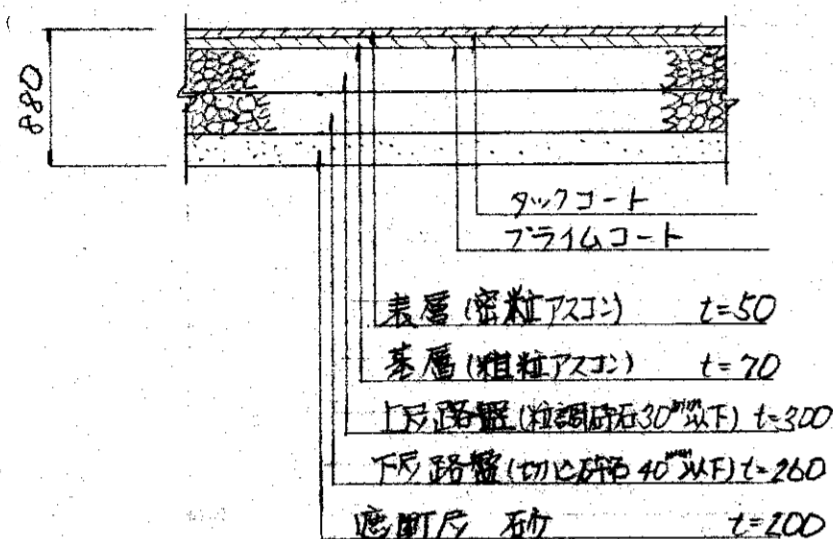 880
タックコート
プライムコート
表層(密粒アスコン) t=50
基層(粗粒アスコン) t=70
上尺路盤(粒調砕石30mm以下) t=300
下尺路盤(切込砕石40mm以下) t=260
遮断尺 砂 t=200